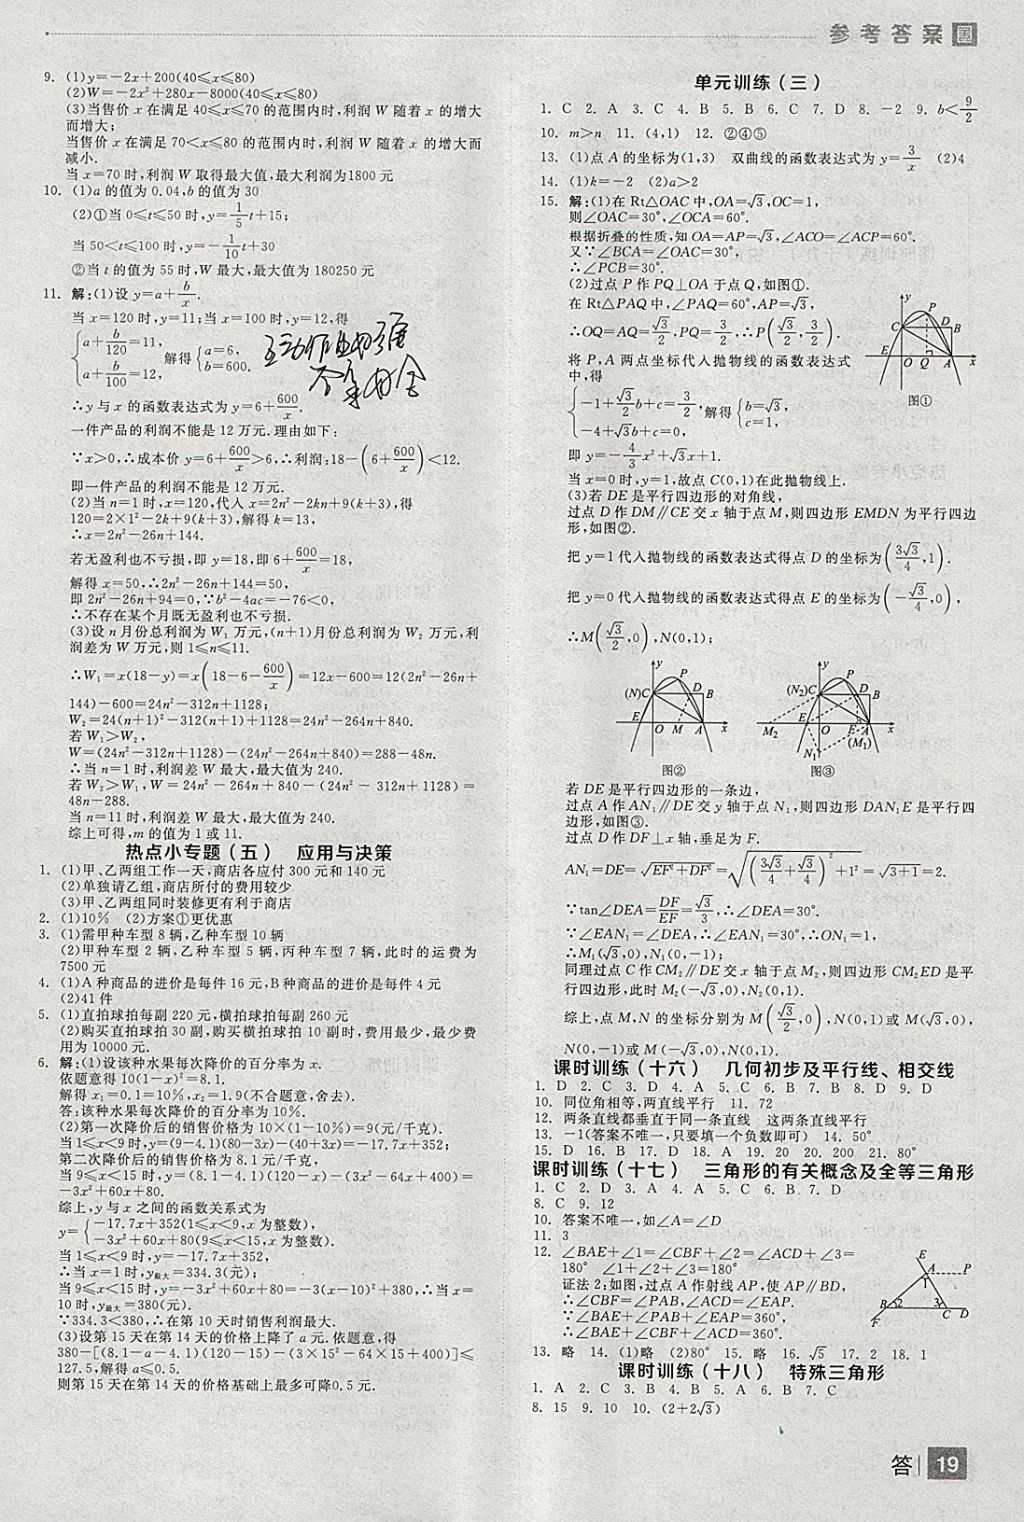 参考答案
9. (1)y=-2x+200(40≤x≤80)
(2)W=-2x²+280x-8000(40≤x≤80)
(3)当售价x在满足40≤x≤70的范围内时,利润W随着x的增大
而增大;
当售价x在满足70<x≤80的范围内时,利润W随着x的增大而
减小.
当x=70时,利润W取得最大值,最大利润为1800元
10. (1)a的值为0.04,b的值为30
(2)①当0≤t≤50时,y=1/5t+15;
当50<t≤100时,y=-1/10t+30
②当t的值为55时,W最大,最大值为180250元
11. 解:(1)设y=a+b/x.
当x=120时,y=11;当x=100时,y=12,得
{a+b/120=11, a+b/100=12, 解得{a=6, b=600.
∴y与x的函数表达式为y=6+600/x.
一件产品的利润不能是12万元.理由如下:
∵x>0,∴成本价y=6+600/x>6,∴利润:18-(6+600/x)<12.
即一件产品的利润不能是12万元.
(2)当n=1时,x=120,代入x=2n²-2kn+9(k+3),得
120=2×1²-2k+9(k+3),解得k=13,
∴x=2n²-26n+144.
若无盈利也不亏损,即y=18,即6+600/x=18,
解得x=50,∴2n²-26n+144=50,
即2n²-26n+94=0,∵b²-4ac=-76<0,
∴不存在某个月既无盈利也不亏损.
(3)设n月份总利润为W₁万元,(n+1)月份总利润为W₂万元,利
润差为W万元,则1≤n≤11.
∴W₁=x(18-y)=x(18-6-600/x)=12x-600=12(2n²-26n+
144)-600=24n²-312n+1128;
W₂=24(n+1)²-312(n+1)+1128=24n²-264n+840.
若W₁>W₂,
W=(24n²-312n+1128)-(24n²-264n+840)=288-48n.
∴当n=1时,利润差W最大,最大值为240.
若W₂>W₁,W=24n²-264n+840-(24n²-312n+1128)=
48n-288.
当n=11时,利润差W最大,最大值为240.
综上可得,m的值为1或11.
热点小专题(五) 应用与决策
1. (1)甲、乙两组工作一天,商店各应付300元和140元
(2)单独请乙组,商店所付的费用较少
(3)甲、乙两组同时装修更有利于商店
2. (1)10% (2)方案①更优惠
3. (1)需甲种车型8辆,乙种车型10辆
(2)甲种车型2辆,乙种车型5辆,丙种车型7辆,此时的运费为
7500元
4. (1)A种商品的进价是每件16元,B种商品的进价是每件4元
(2)41件
5. (1)直拍球拍每副220元,横拍球拍每副260元
(2)购买直拍球拍30副,购买横拍球拍10副时,费用最少,最少费
用为10000元.
6. 解:(1)设该种水果每次降价的百分率为x.
依题意得10(1-x)²=8.1.
解得x₁=0.1=10%,x₂=1.9(不合题意,舍去).
答:该种水果每次降价的百分率为10%.
(2)第一次降价后的销售价格为10×(1-10%)=9(元/千克).
当1≤x<9时,y=(9-4.1)(80-3x)-(40+3x)=-17.7x+352;
第二次降价后的销售价格为8.1元/千克,
当9≤x<15时,y=(8.1-4.1)(120-x)-(3x²-64x+400)=
-3x²+60x+80.
综上,y与x之间的函数关系式为
y={-17.7x+352(1≤x<9,x为整数), -3x²+60x+80(9≤x<15,x为整数).
当1≤x<9时,y=-17.7x+352,
∴当x=1时,y最大=334.3(元);
当9≤x<15时,y=-3x²+60x+80=-3(x-10)²+380,∴当x=
10时,y最大=380(元).
∵334.3<380,∴在第10天时销售利润最大.
(3)设第15天在第14天的价格上降了a元.依题意,得
380-[(8.1-a-4.1)(120-15)-(3×15²-64×15+400)]≤
127.5,解得a≤0.5.
则第15天在第14天的价格基础上最多可降0.5元.
单元训练(三)
1. C 2. A 3. C 4. B 5. B 6. C 7. D 8. -2 9. b<9/2
10. m>n 11. (4,1) 12. ②④⑤
13. (1)点A的坐标为(1,3) 双曲线的函数表达式为y=3/x (2)4
14. (1)k=-2 (2)a>2
15. 解:(1)在Rt△OAC中,OA=√3,OC=1,
则∠OAC=30°,∠OCA=60°.
根据折叠的性质,知OA=AP=√3,∠ACO=∠ACP=60°.
又∵∠BCA=∠OAC=30°,
∴∠PCB=30°.
(2)过点P作PQ⊥OA于点Q,如图①.
在Rt△PAQ中,∠PAQ=60°,AP=√3,
∴OQ=AQ=√3/2,PQ=3/2,∴P(√3/2,3/2).
将P,A两点坐标代入抛物线的函数表达式
中,得
{-1+√3/2b+c=3/2, -4+√3b+c=0, 解得{b=√3, c=1,
即y=-4/3x²+√3x+1.
当x=0时,y=1,故点C(0,1)在此抛物线上.
y P C D B E O Q A x
图①
(3)若DE是平行四边形的对角线,
过点D作DM∥CE交x轴于点M,则四边形EMDN为平行四边
形,如图②.
把y=1代入抛物线的函数表达式得点D的坐标为(3√3/4,1).
把y=0代入抛物线的函数表达式得点E的坐标为(-√3/4,0),
∴M(√3/2,0),N(0,1);
y (N)C P D B E O M A x
图②
y (N₂)C P D B M₂ E O F A x (M₁) N₁
图③
若DE是平行四边形的一条边,
过点A作AN₁∥DE交y轴于点N₁,则四边形DAN₁E是平行四
边形,如图③.
过点D作DF⊥x轴,垂足为F.
AN₁=DE=√(EF²+DF²)=√((3√3/4+√3/4)²+1²)=√(3+1)=2.
∵tan∠DEA=DF/EF=√3/3,∴∠DEA=30°.
∵∠EAN₁=∠DEA,∴∠EAN₁=30°,∴ON₁=1,
∴M₁(√3,0),N₁(0,-1);
同理过点C作CM₂∥DE交x轴于点M₂,则四边形CM₂ED是平行
四边形,此时M₂(-√3,0),N₂(0,1).
综上,点M,N的坐标分别为M(√3/2,0),N(0,1)或M(√3,0),
N(0,-1)或M(-√3,0),N(0,1).
课时训练(十六) 几何初步及平行线、相交线
1. D 2. C 3. D 4. A 5. C 6. B 7. B 8. D 9. D
10. 同位角相等,两直线平行 11. 72
12. 两条直线都垂直于同一条直线 这两条直线平行
13. -1(答案不唯一,只要填一个负数即可) 14. 50°
15. D 16. B 17. D 18. A 19. 20 20. 21 21. 80°
课时训练(十七) 三角形的有关概念及全等三角形
1. C 2. D 3. A 4. A 5. C 6. B 7. D
8. C 9. 12
10. 答案不唯一,如∠A=∠D
11. 3
12. ∠BAE+∠1=∠CBF+∠2=∠ACD+∠3=
180° ∠1+∠2+∠3=180°
证法2:如图,过点A作射线AP,使AP∥BD,
∴∠CBF=∠PAB,∠ACD=∠EAP.
∵∠BAE+∠PAB+∠EAP=360°,
∴∠BAE+∠CBF+∠ACD=360°.
E A P 1 B 2 3 C D F
13. 略 14. (1)略 (2)80° 15. 略 16. √5 17. 2 18. 1
课时训练(十八) 特殊三角形
1. A 2. C 3. B 4. B 5. A 6. B 7. C
8. 15 9. 10 10. (2+2√3)
答 19